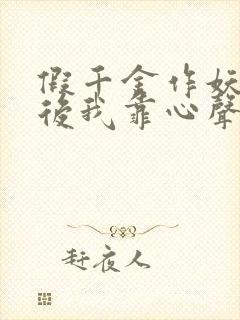 假千金作妖
後我靠心聲
赶夜人